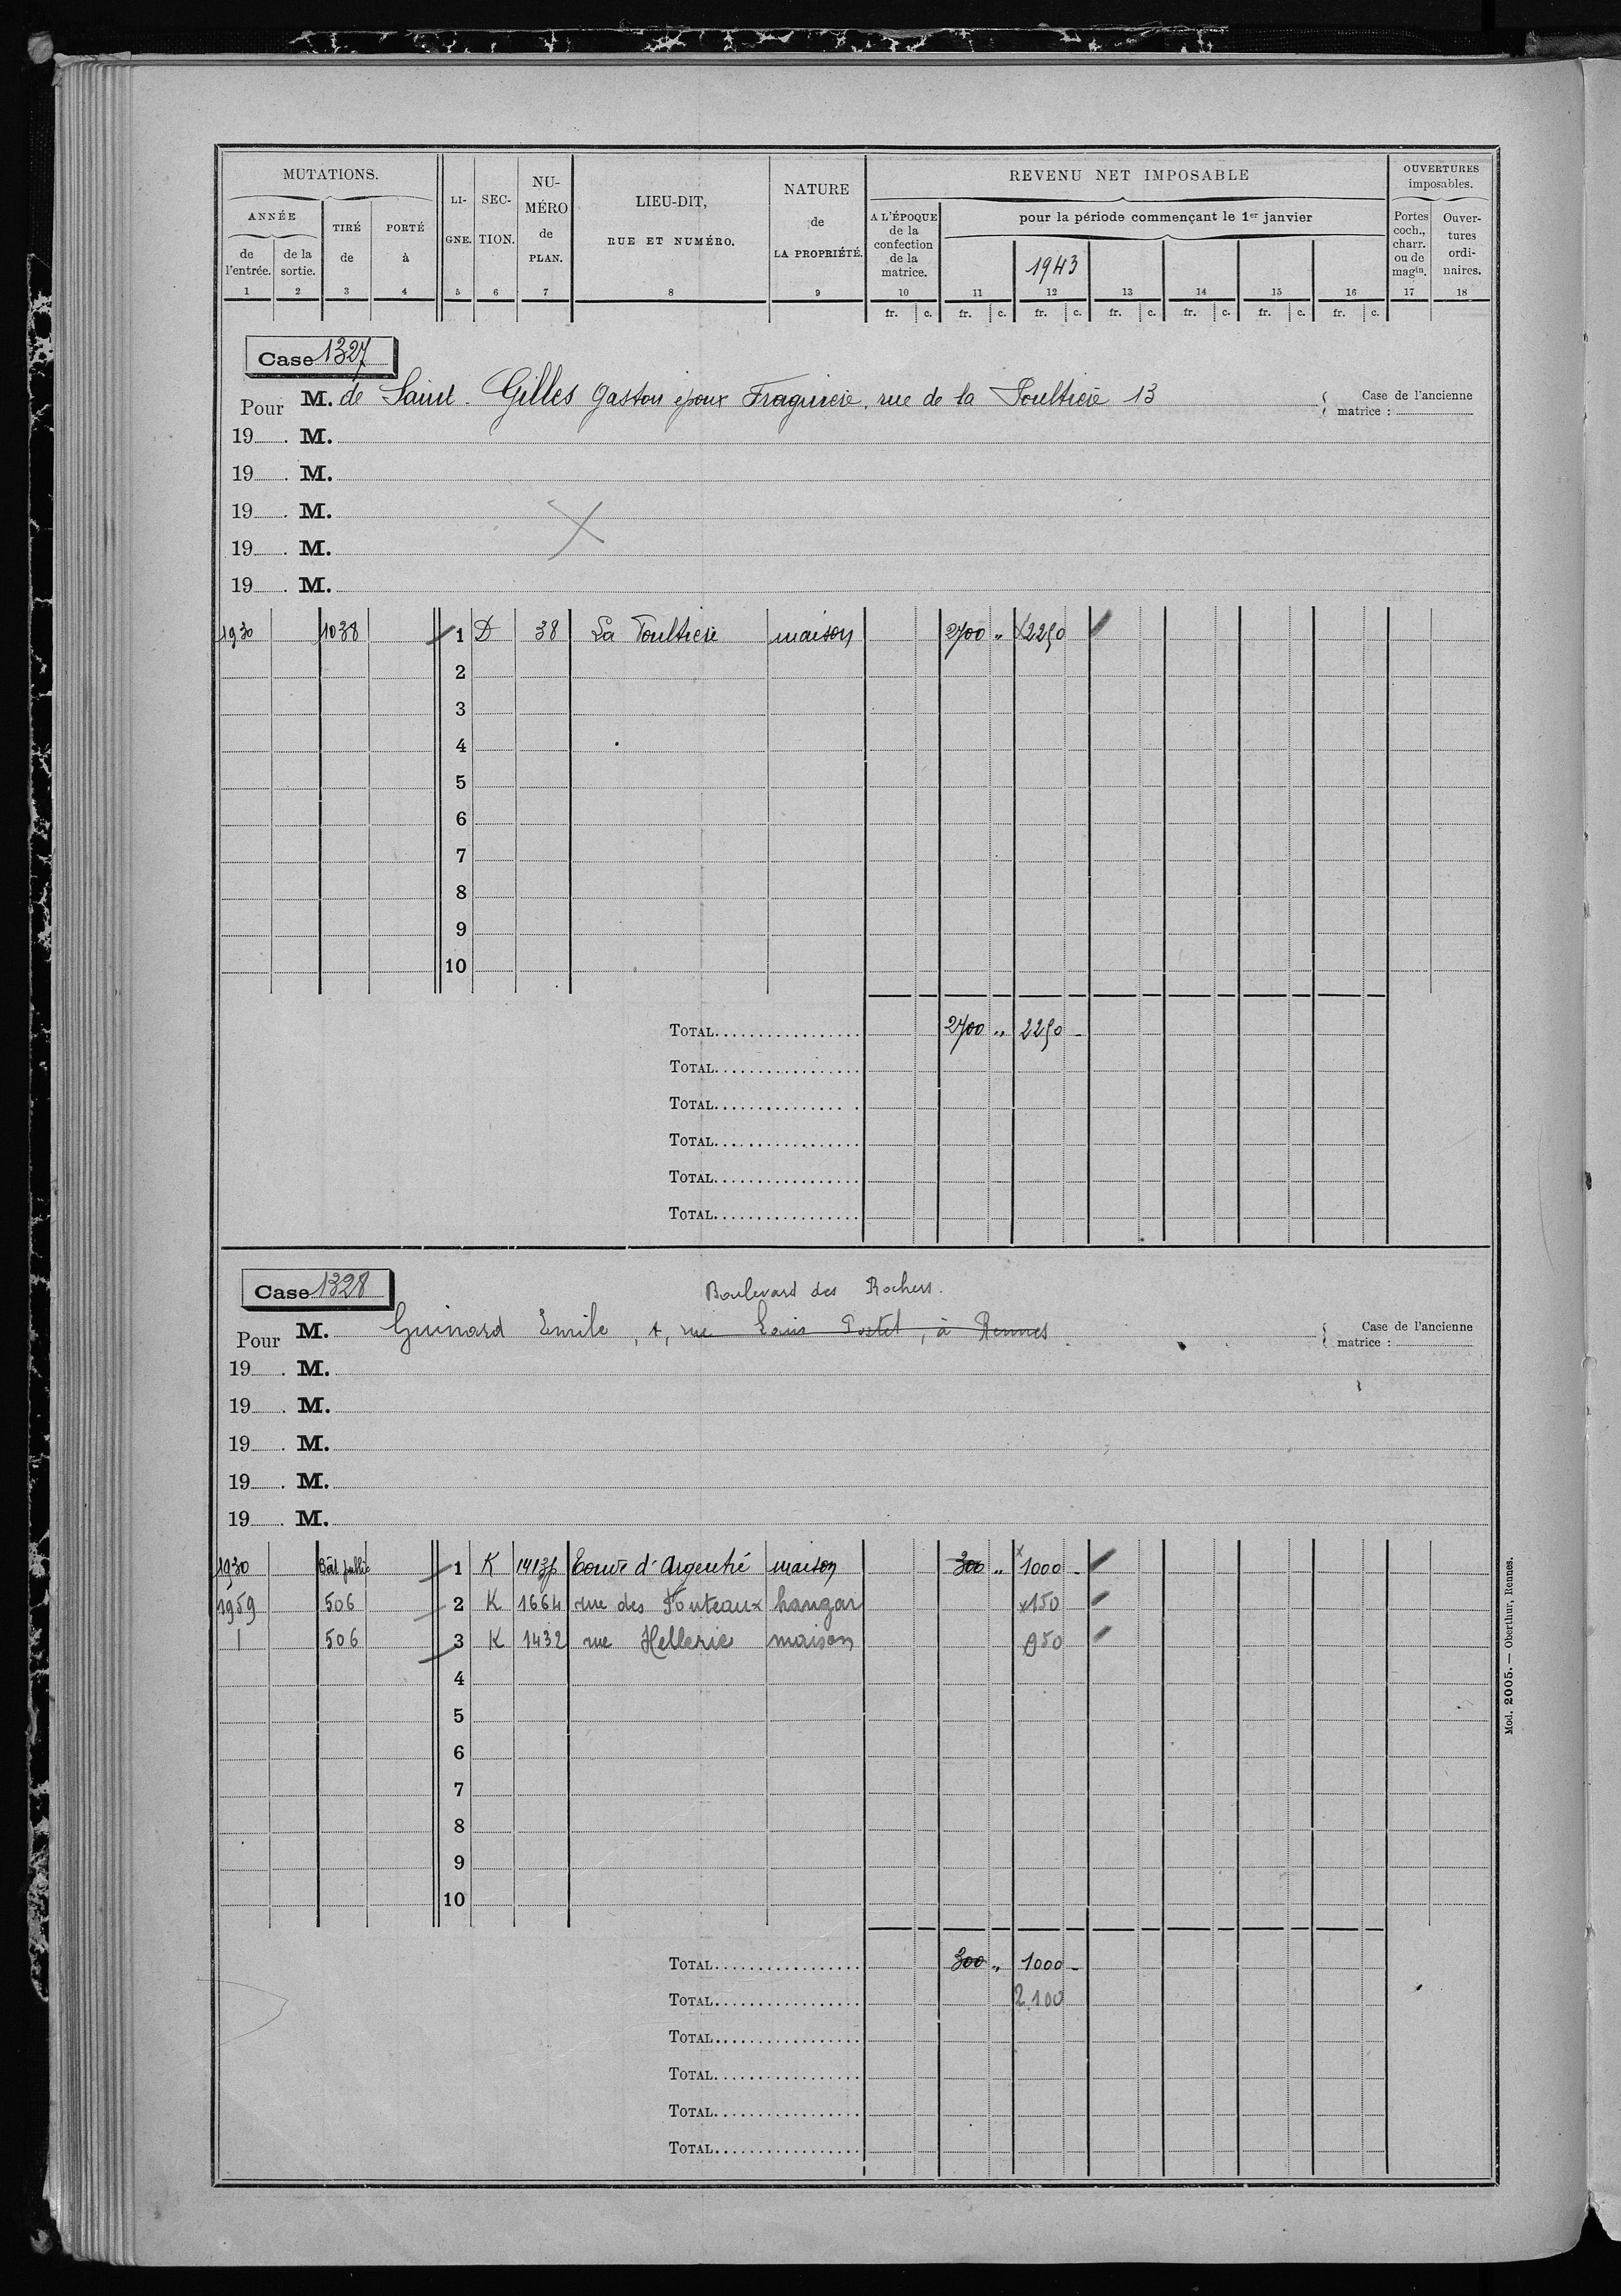 MUTATIONS. LI-GNE. SEC-TION. NU-MÉRO de PLAN. LIEU-DIT, RUE ET NUMÉRO. NATURE de LA PROPRIÉTÉ. REVENU NET IMPOSABLE OUVERTURES imposables.
ANNÉE TIRÉ de PORTÉ à A L'ÉPOQUE de la confection de la matrice. pour la période commençant le 1er janvier Portes coch., charr. ou de magin. Ouver-tures ordi-naires.
de l'entrée. de la sortie. 1943
1 2 3 4 5 6 7 8 9 10 11 12 13 14 15 16 17 18
fr. c. fr. c. fr. c. fr. c. fr. c. fr. c. fr. c.
Case 1327
Pour M. de Saint-Gilles Gaston époux rue de la 13 Case de l'ancienne matrice :
19 . M.
19 . M.
19 . M.
19 . M.
19 . M.
1930 1038 1 D 38 La maison 2700 " 2250
2
3
4
5
6
7
8
9
10
TOTAL 2700 " 2250 -
TOTAL
TOTAL
TOTAL
TOTAL
TOTAL
Case 1328
Boulevard des Rochers.
Pour M. Guinard Emile, 1, rue Louis Postel, à Rennes Case de l'ancienne matrice :
19 . M.
19 . M.
19 . M.
19 . M.
19 . M.
1930 Bât public 1 K 1413p d'Argentré maison 300 " x 1000 -
1959 506 2 K 1664 rue des Fouteaux hangar x 150
| 506 3 K 1432 rue Hellerie maison 950
4
5
6
7
8
9
10
TOTAL 300 " 1000 -
TOTAL 2.100
TOTAL
TOTAL
TOTAL
TOTAL
Mod. 2005. — Oberthur, Rennes.